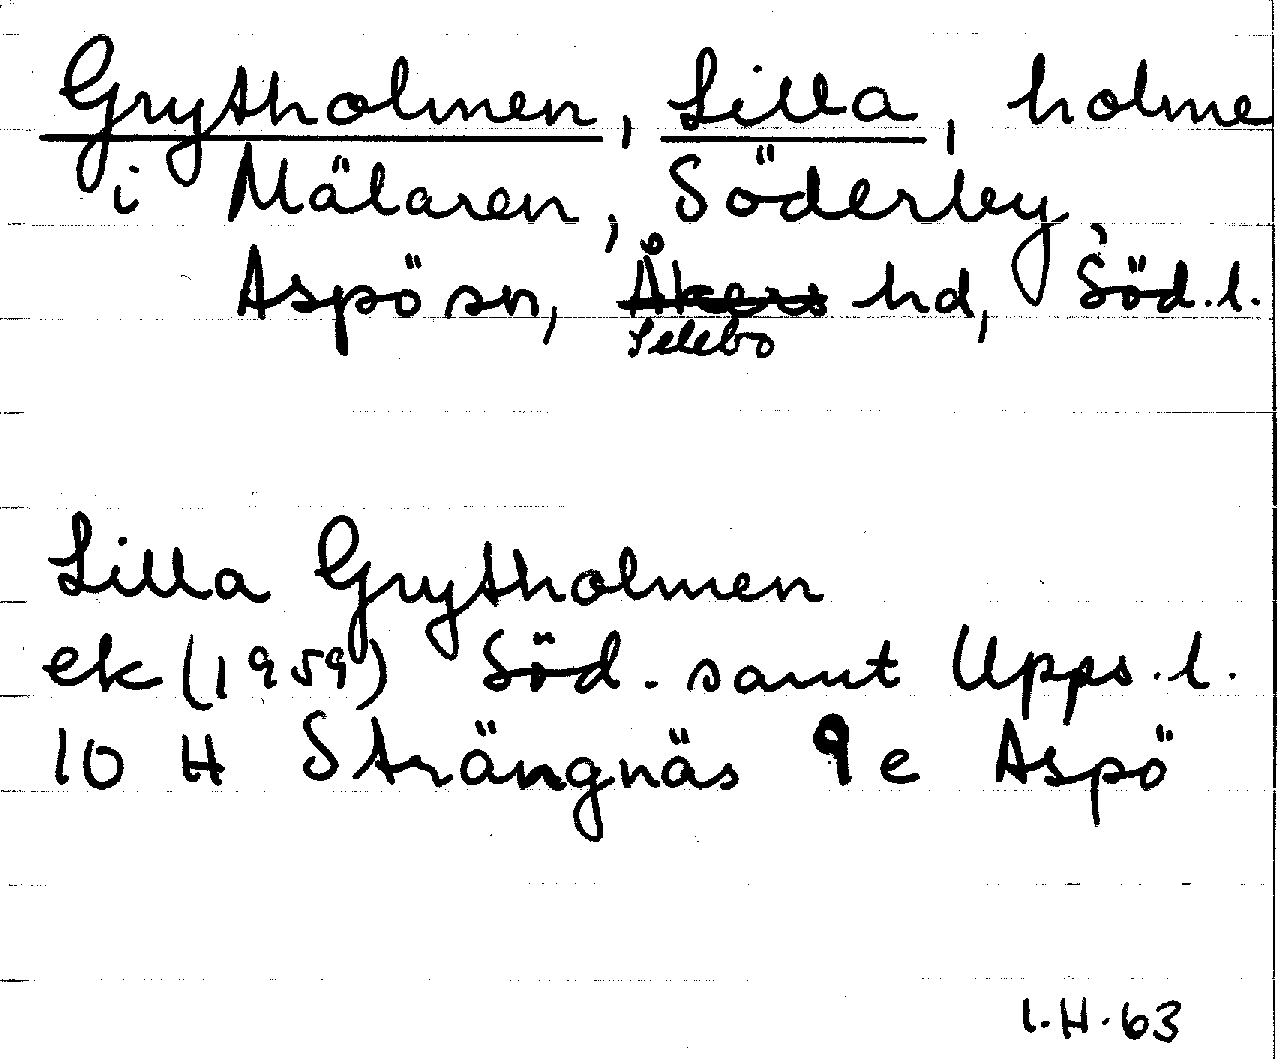 Grytholmen, Lilla, holme
i Mälaren, Söderby,
Aspö sn, Åkers hd, Söd.l.
Selebo
Lilla Grytholmen
ek (1959) Söd. samt Upps.l.
10 H Strängnäs 9e Aspö
I.H.63